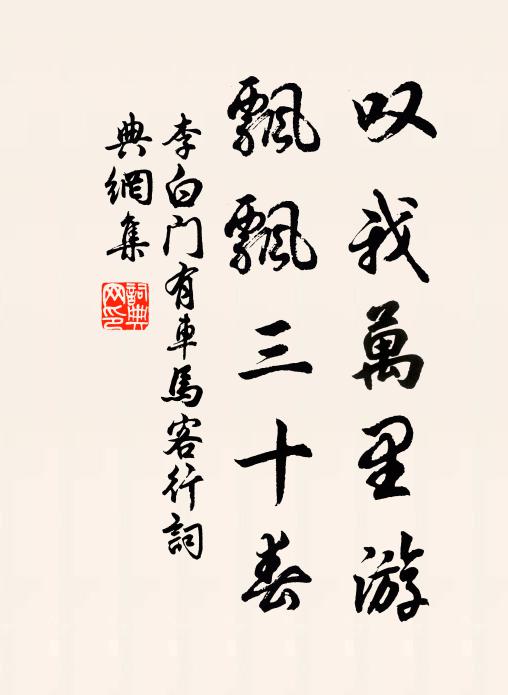 叹我萬里游
飄飄三十春
李白门有車馬客行詞
典網集
詞典网印